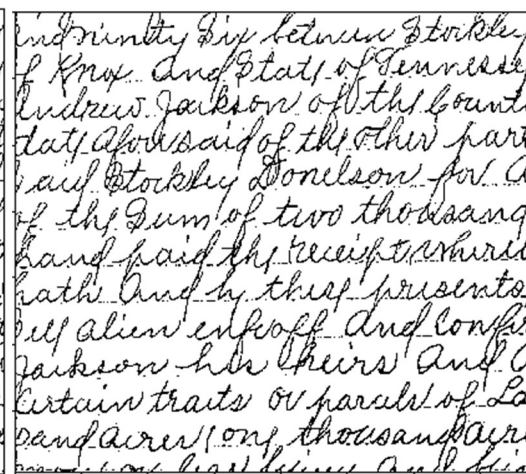 and ninety Six between Stockley
of Knox and State of Tennesse
Andrew Jackson of the Count
State aforesaid of the other part
Said Stockley Donelson for a
of the Sum of two thousand
hand paid the receipt wheris
hath and by these presents
Sell alien enfeoff and Confi
Jackson his heirs and a
Certain traits or parcels of La
sand acres (one thousand acre